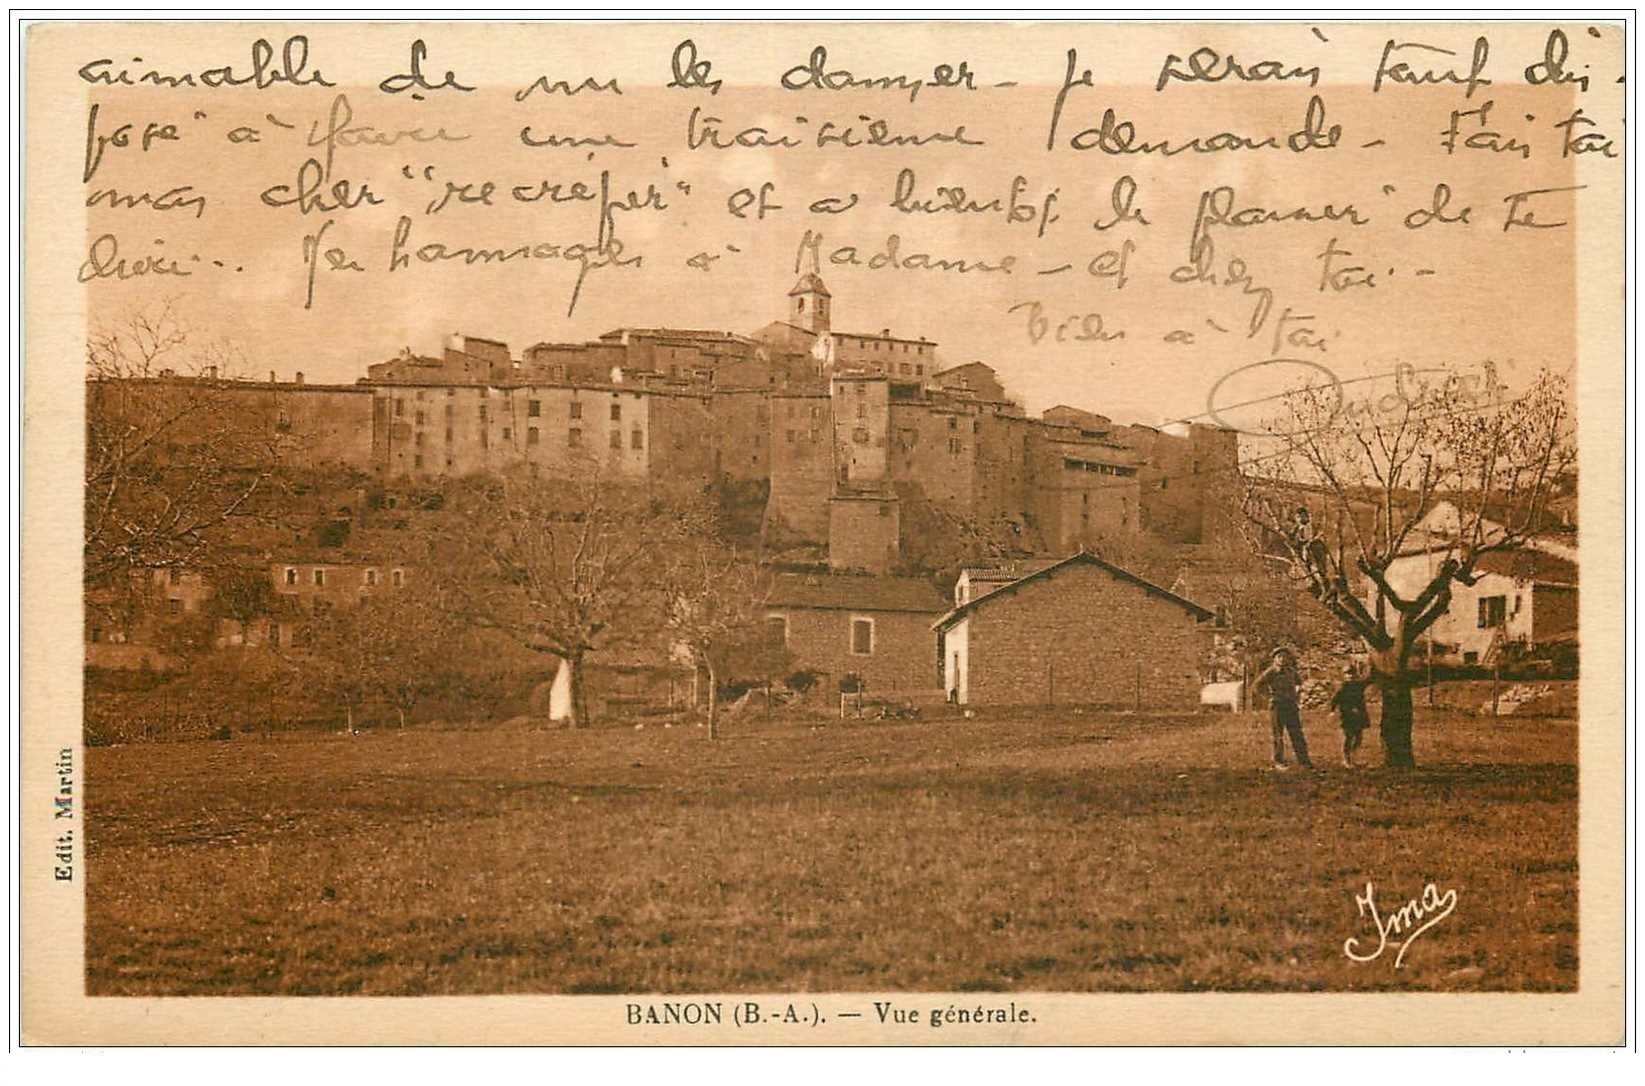 aimable de nu les donner — je serais tout dis-
posé à faire une troisième demande — Fais toi
mon cher "recréper" et a bientôt le plaisir de te
Mes hommages à Madame — et chez toi —
Bien à toi
Edit. Martin
Ima
BANON (B.-A.). — Vue générale.